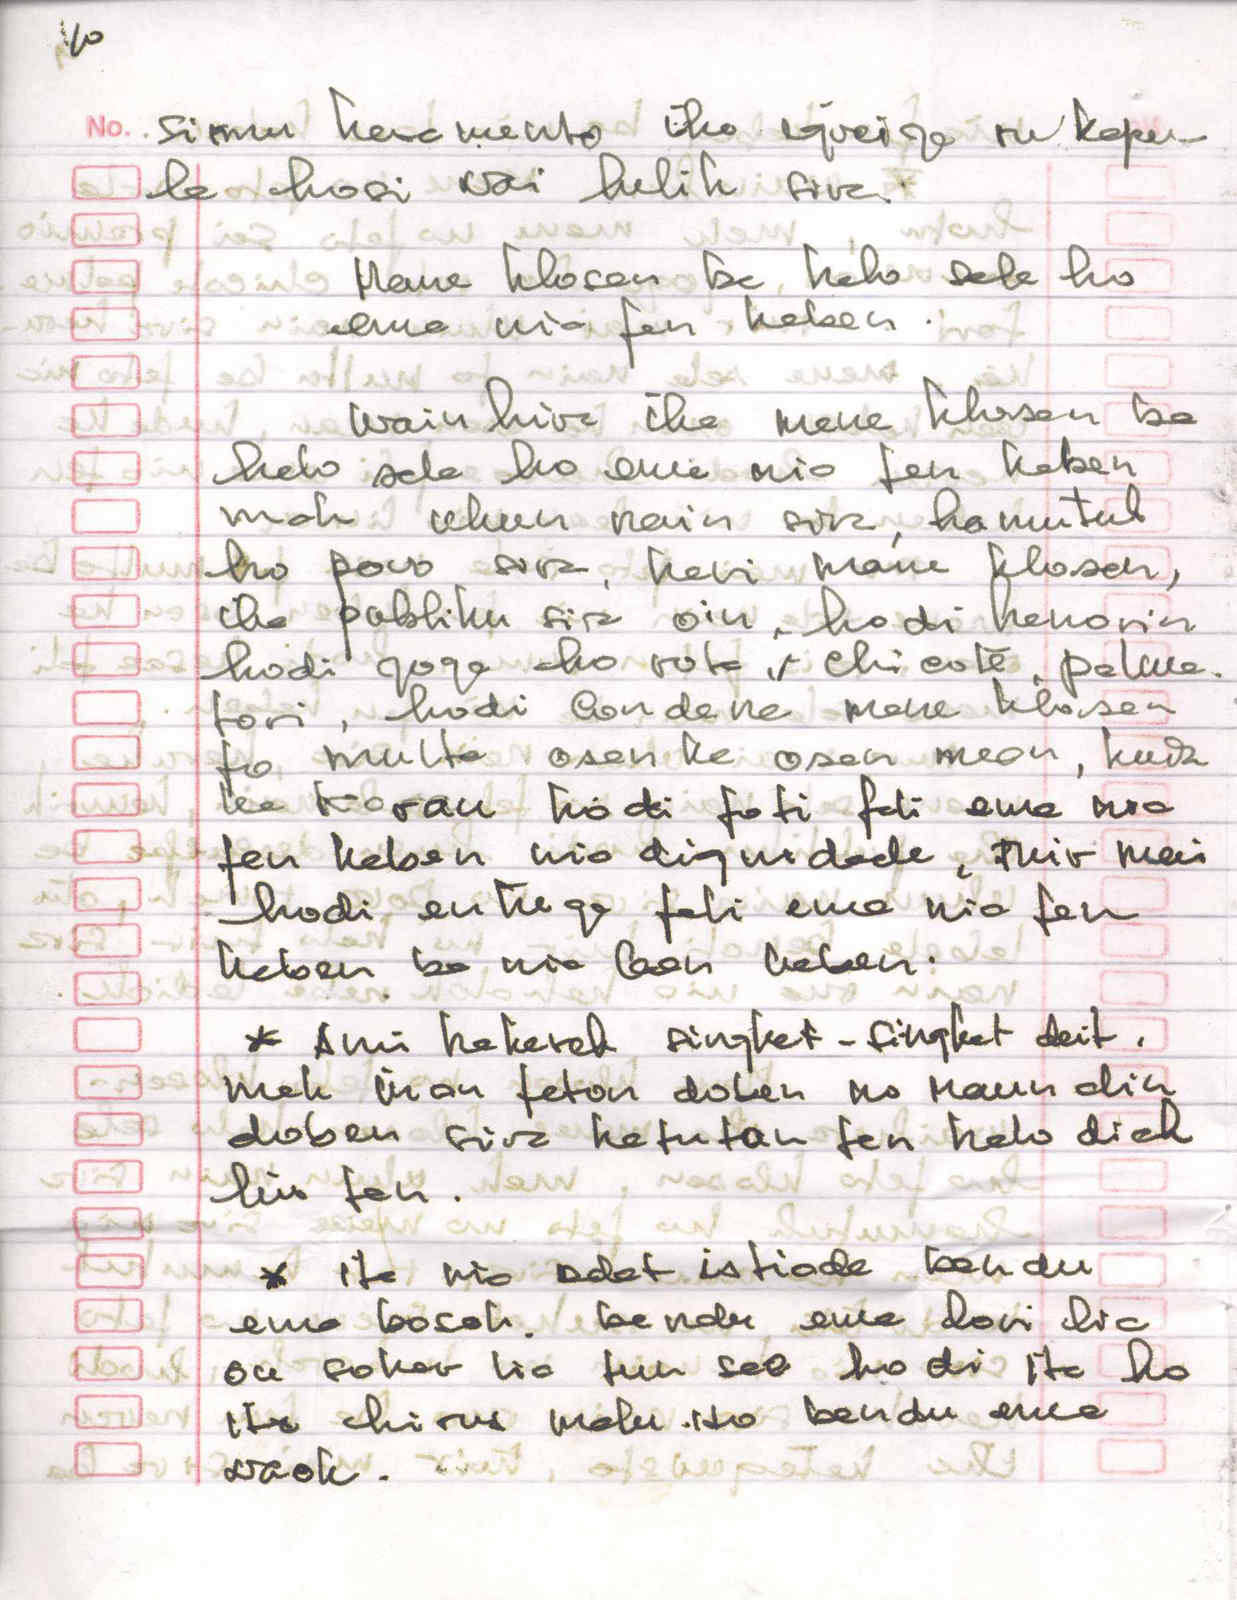 10
No. simu keramento iha igreiga nu kape-
la hosi nai lulik sira.
Mane klosan ba halo sala ho
ema nia fen kaben.
Wainhira iha mane klosan ba
halo sala ho ema nia fen kaben
mak ukun nain sira, hamutuk
ho povo sira, kari mane klosan,
iha publiku sira oin, hodi hanorin
hodi goga ho rota, chicote, palma-
tori, hodi Condena mane klosen
fo multa osan ka osan mean,
hodi foti fali ema nia
fen kaben nia dignidade, tuir mai
hodi entrega fali ema nia fen
kaben ba nia laen kaben.
* Ami hakerek singkat-singkat deit.
mak inan feton doben no maun alin
doben sira hatutan ten halo diak
liu tan.
* ita nia adat istiade bandu
ema bosok. bandu ema lori lia
ou sokar lia tun sae hodi ita ho
ita chirus malu. ito bandu ema
naok.